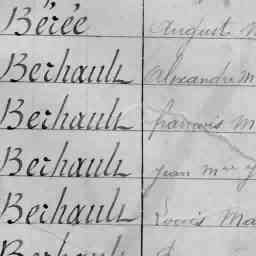 Bérée August
Berhault Alexandre M
Berhault francois M
Berhault Jean Mie J
Berhault Louis Ma
Berhault